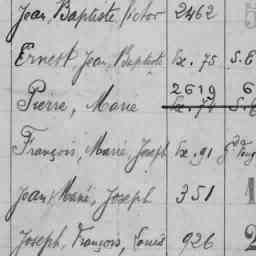 Jean, Baptiste, Victor 2462
Ernest Jean, Baptiste Ex. 75 S.E
2619 6
Pierre, Marie Ex. 74 S.E
François, Marie, Joseph Ex. 91
Jean Marie, Joseph 351 1
Joseph, François, Louis 926 2